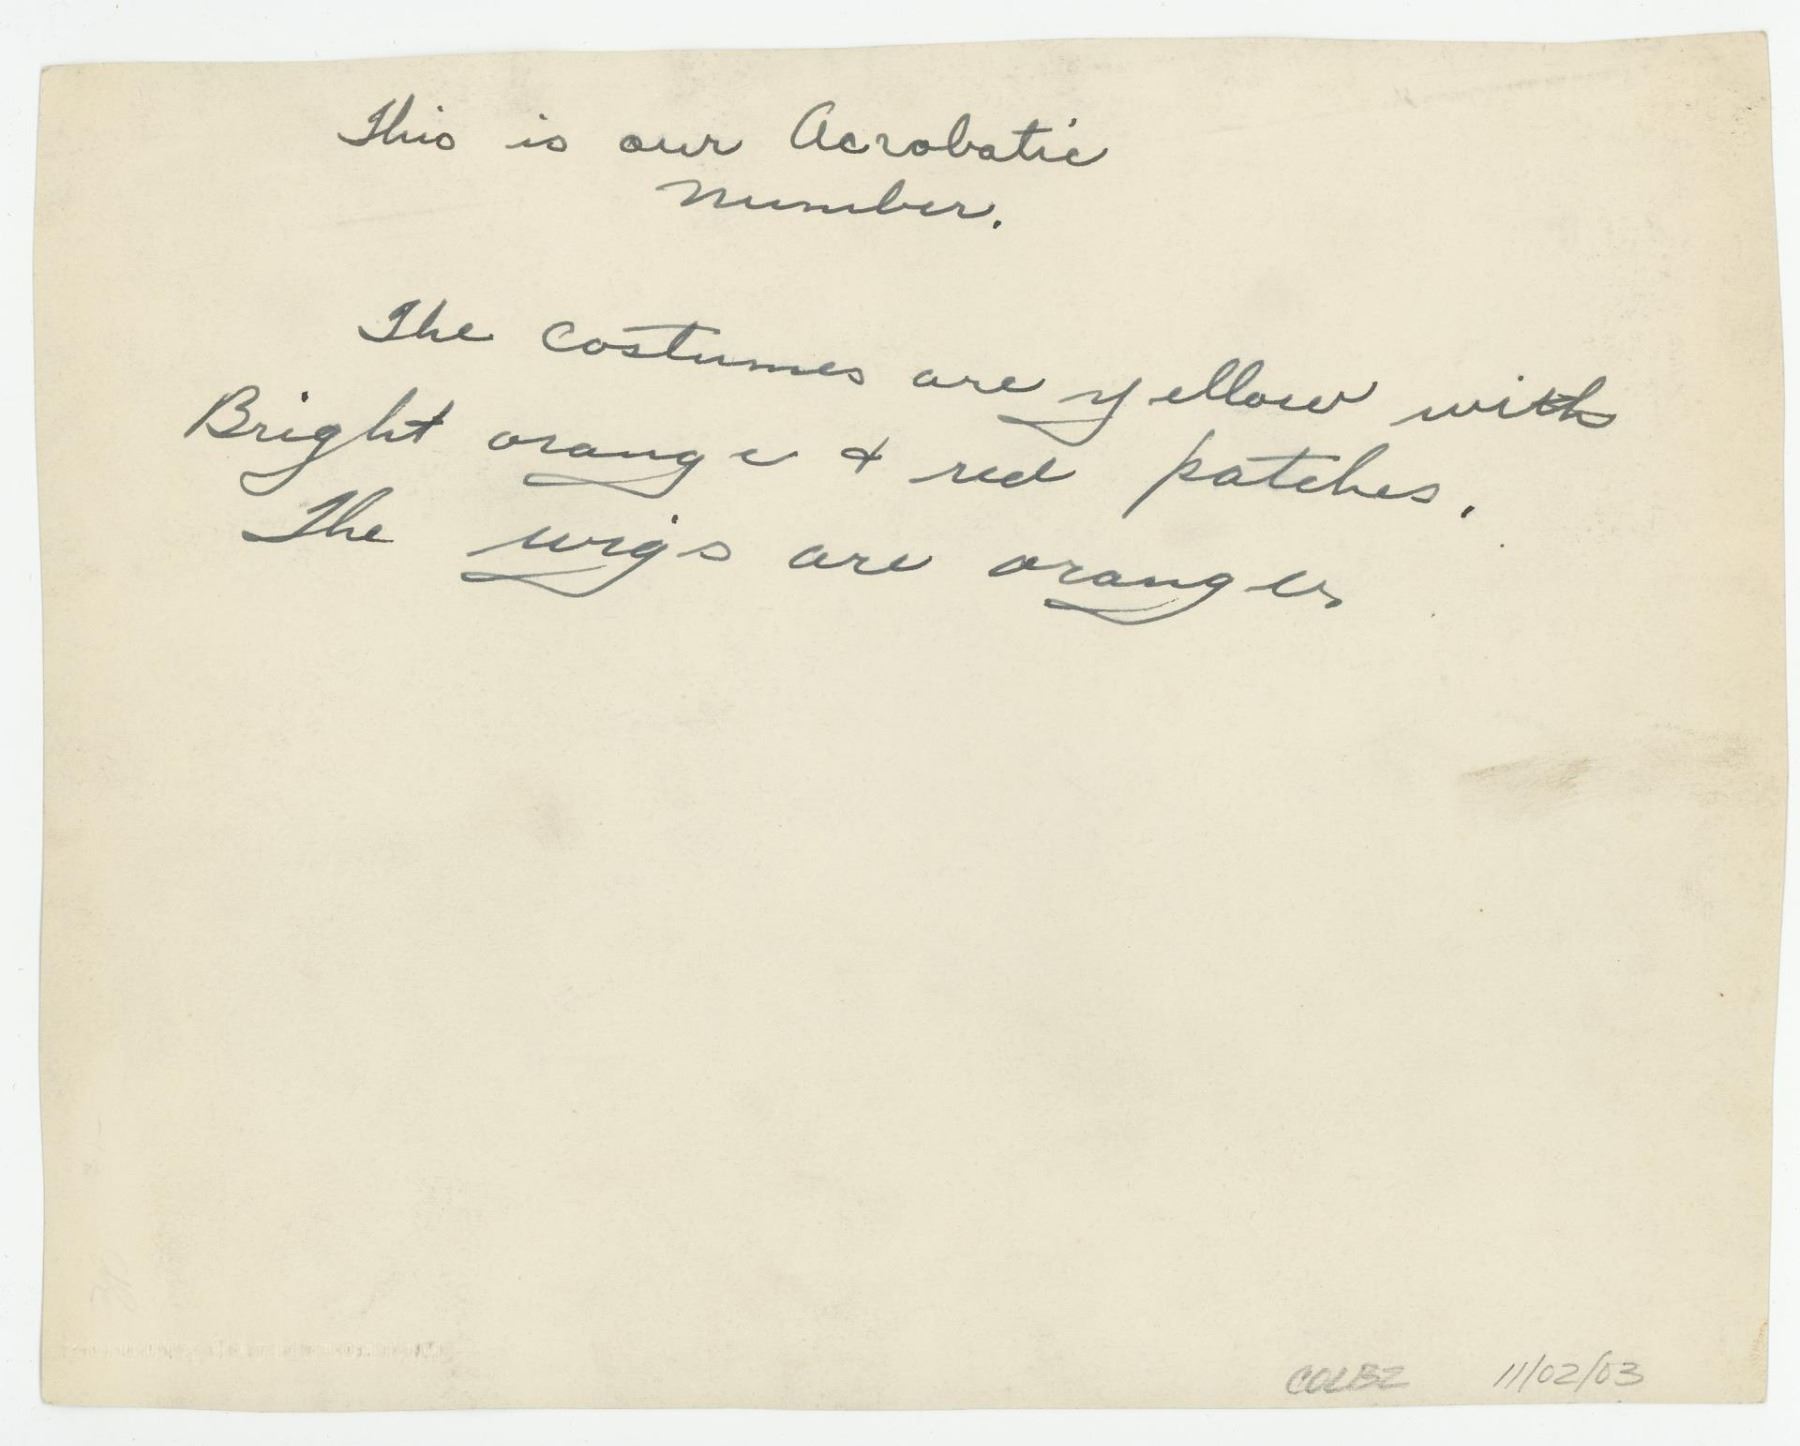 This is our Acrobatic
Number.
The Costumes are yellow with
Bright orange & red patches.
The wigs are orange.
11/02/03